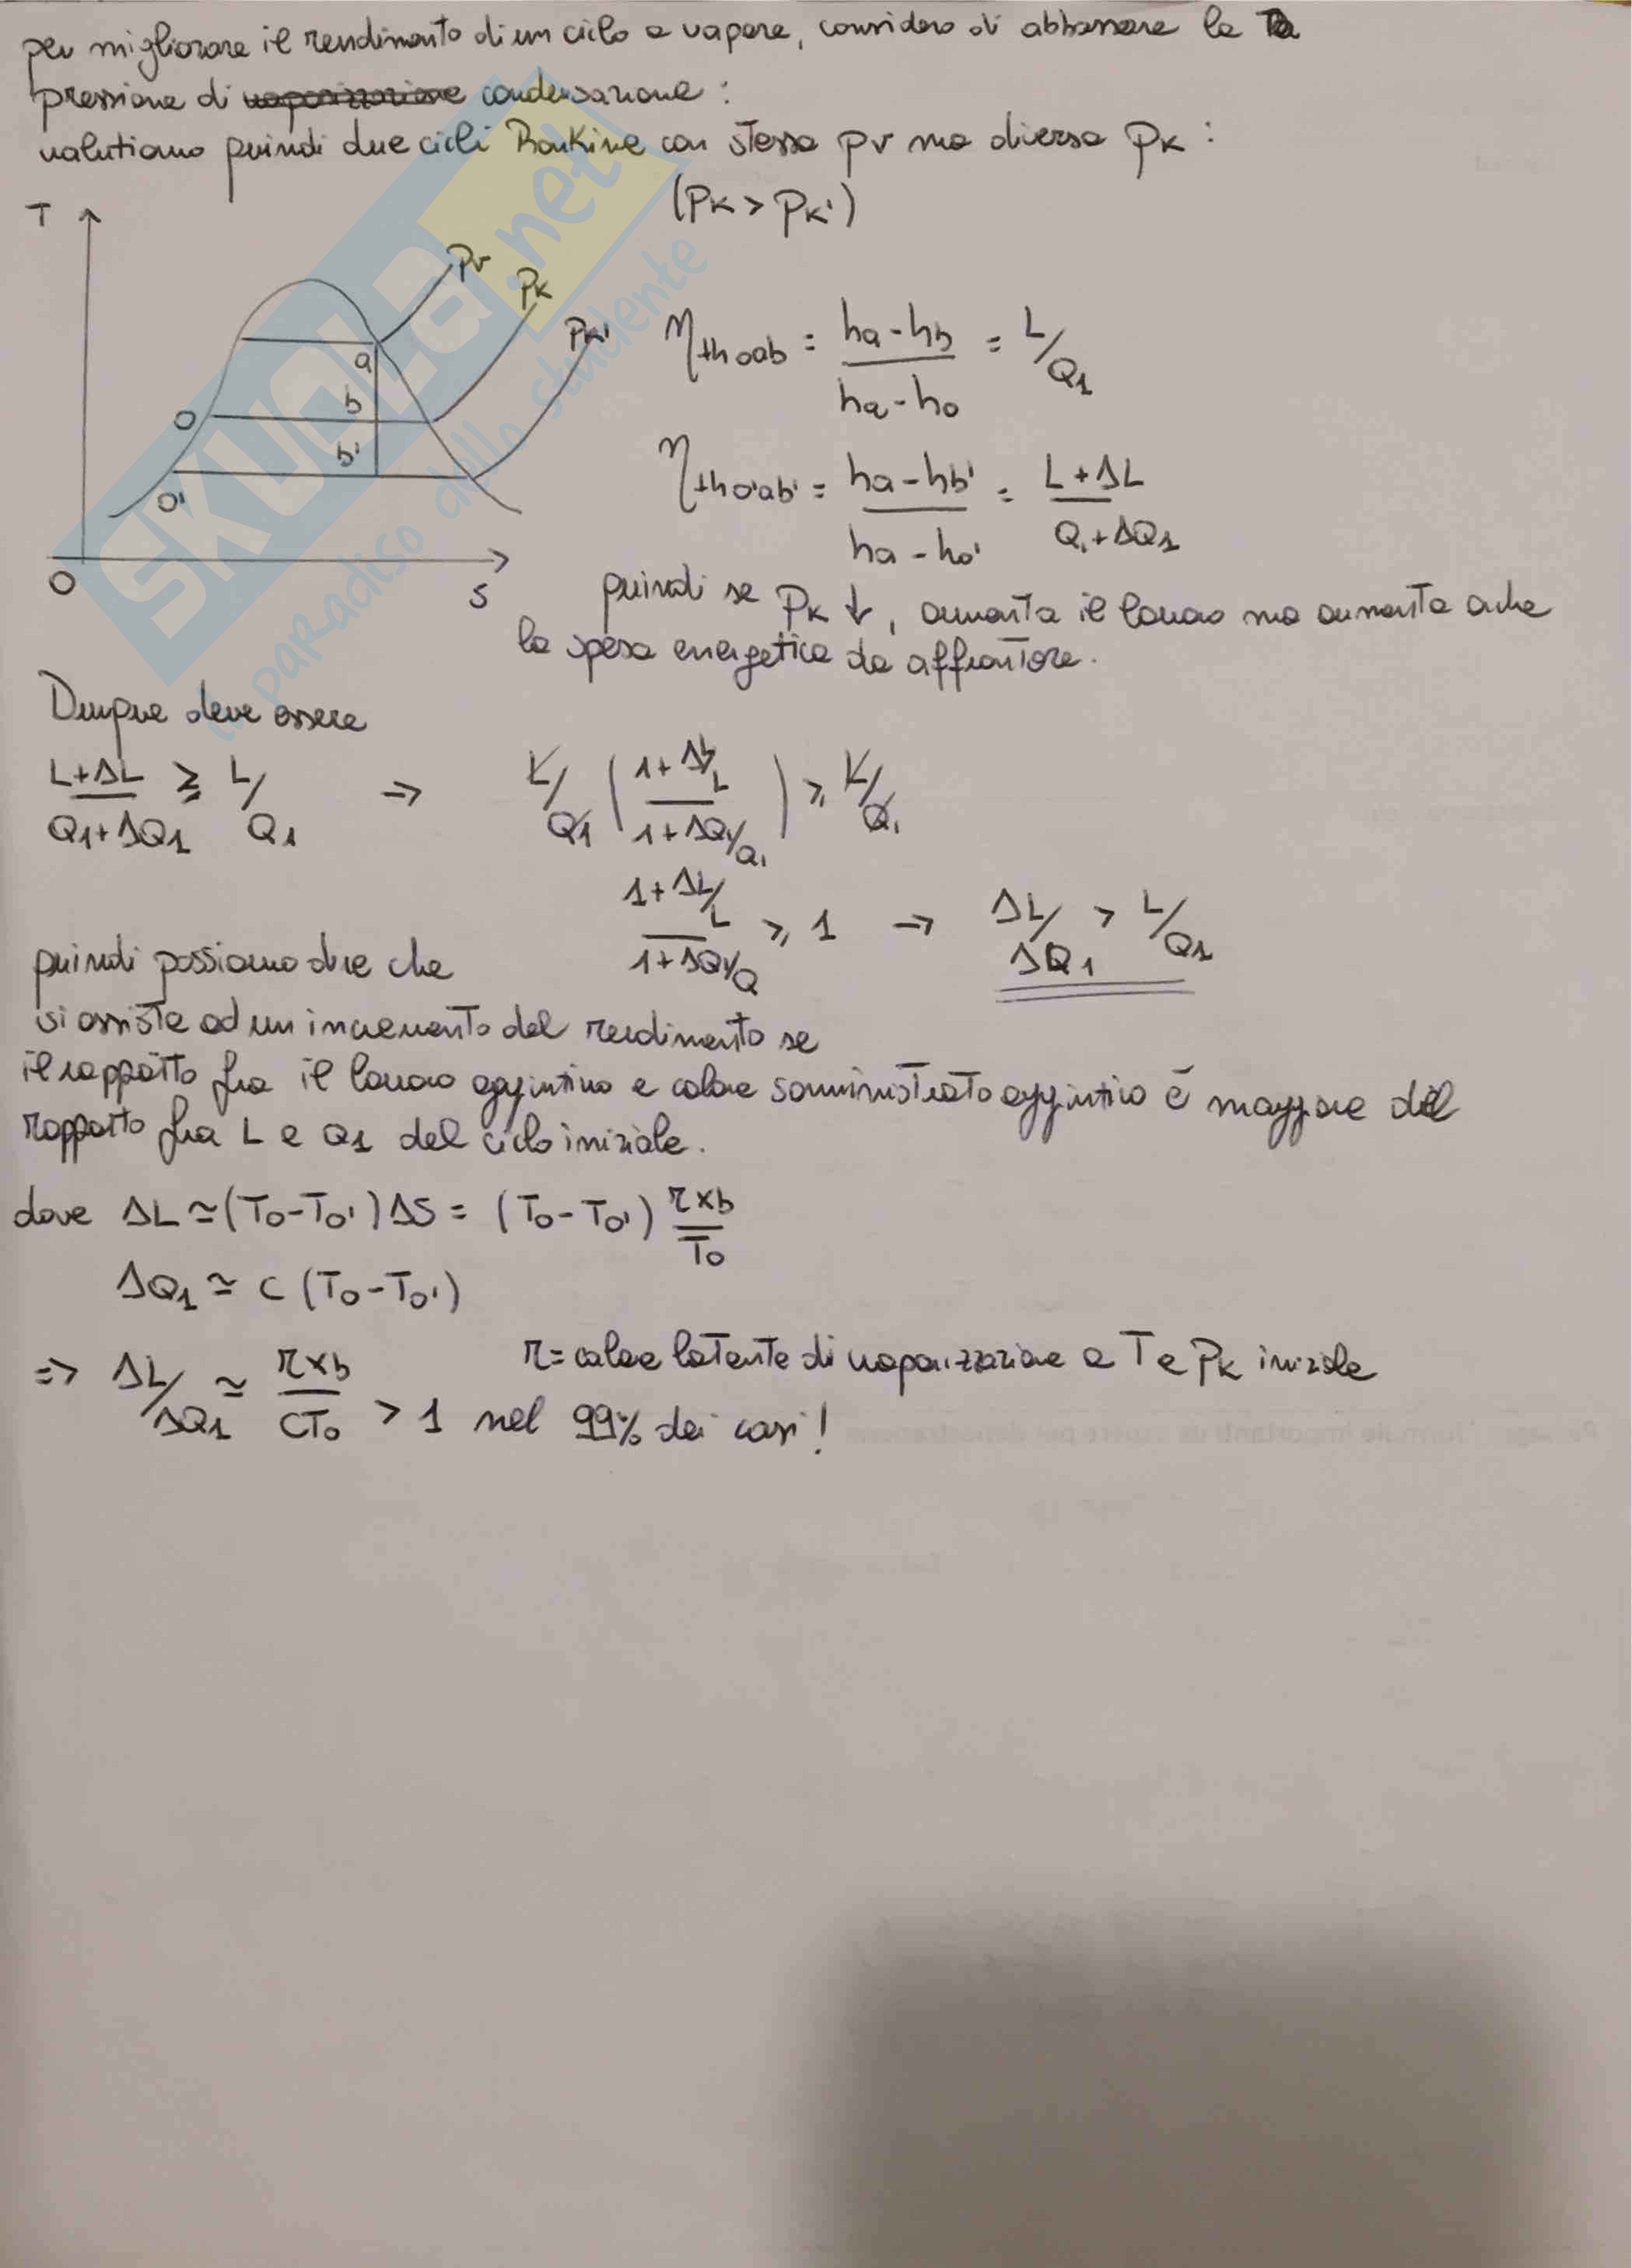 per migliorare il rendimento di un ciclo a vapore, considero di abbassare la
pressione di vaporizzazione condensazione :
valutiamo quindi due cicli Rankine con stessa pv ma diversa pK :
(PK > PK')
T
Pv
PK
PK'
a
b
b'
O
O'
O
S
ηth oab = ha - hb / ha - ho = L/Q1
ηth o'ab' = ha - hb' / ha - ho' = L + ΔL / Q1 + ΔQ1
quindi se PK ↓, aumenta il lavoro ma aumenta anche
la spesa energetica da affrontare.
Dunque deve essere
L+ΔL / Q1+ΔQ1 ≥ L/Q1 ⇒ L/Q1 ( 1+ΔL/L / 1+ΔQ1/Q1 ) ≥ L/Q1
1+ΔL/L / 1+ΔQ1/Q ≥ 1 → ΔL/ΔQ1 > L/Q1
quindi possiamo dire che
si assiste ad un incremento del rendimento se
il rapporto fra il lavoro aggiuntivo e calore somministrato aggiuntivo è maggiore del
rapporto fra L e Q1 del ciclo iniziale.
dove ΔL ≃ (To - To') ΔS = (To - To') r xb / To
ΔQ1 ≃ c (To - To')
⇒ ΔL/ΔQ1 ≃ r xb / cTo > 1 nel 99% dei casi!
r = calore latente di vaporizzazione a T e PK iniziale
SKUOLA.net
il paradiso dello studente